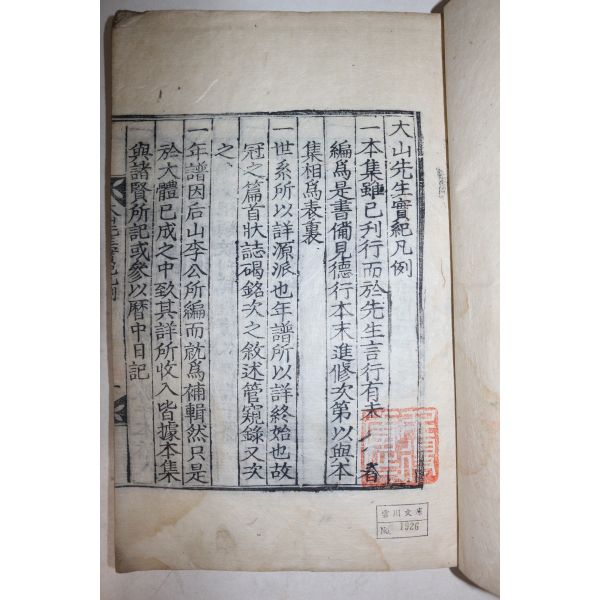 大山先生實紀凡例
一本集雖已刋行而於先生言行有未
編爲是書備見德行本末進修次第以與本
集相爲表裏
一世系所以詳源派也年譜所以詳終始也故
冠之篇首狀誌碣銘次之敘述管窺錄又次
之
一年譜因后山李公所編而就爲補輯然只是
於大體已成之中致其詳所收入皆據本集
與諸賢所記或參以曆中日記
雲川文庫
No. 1926